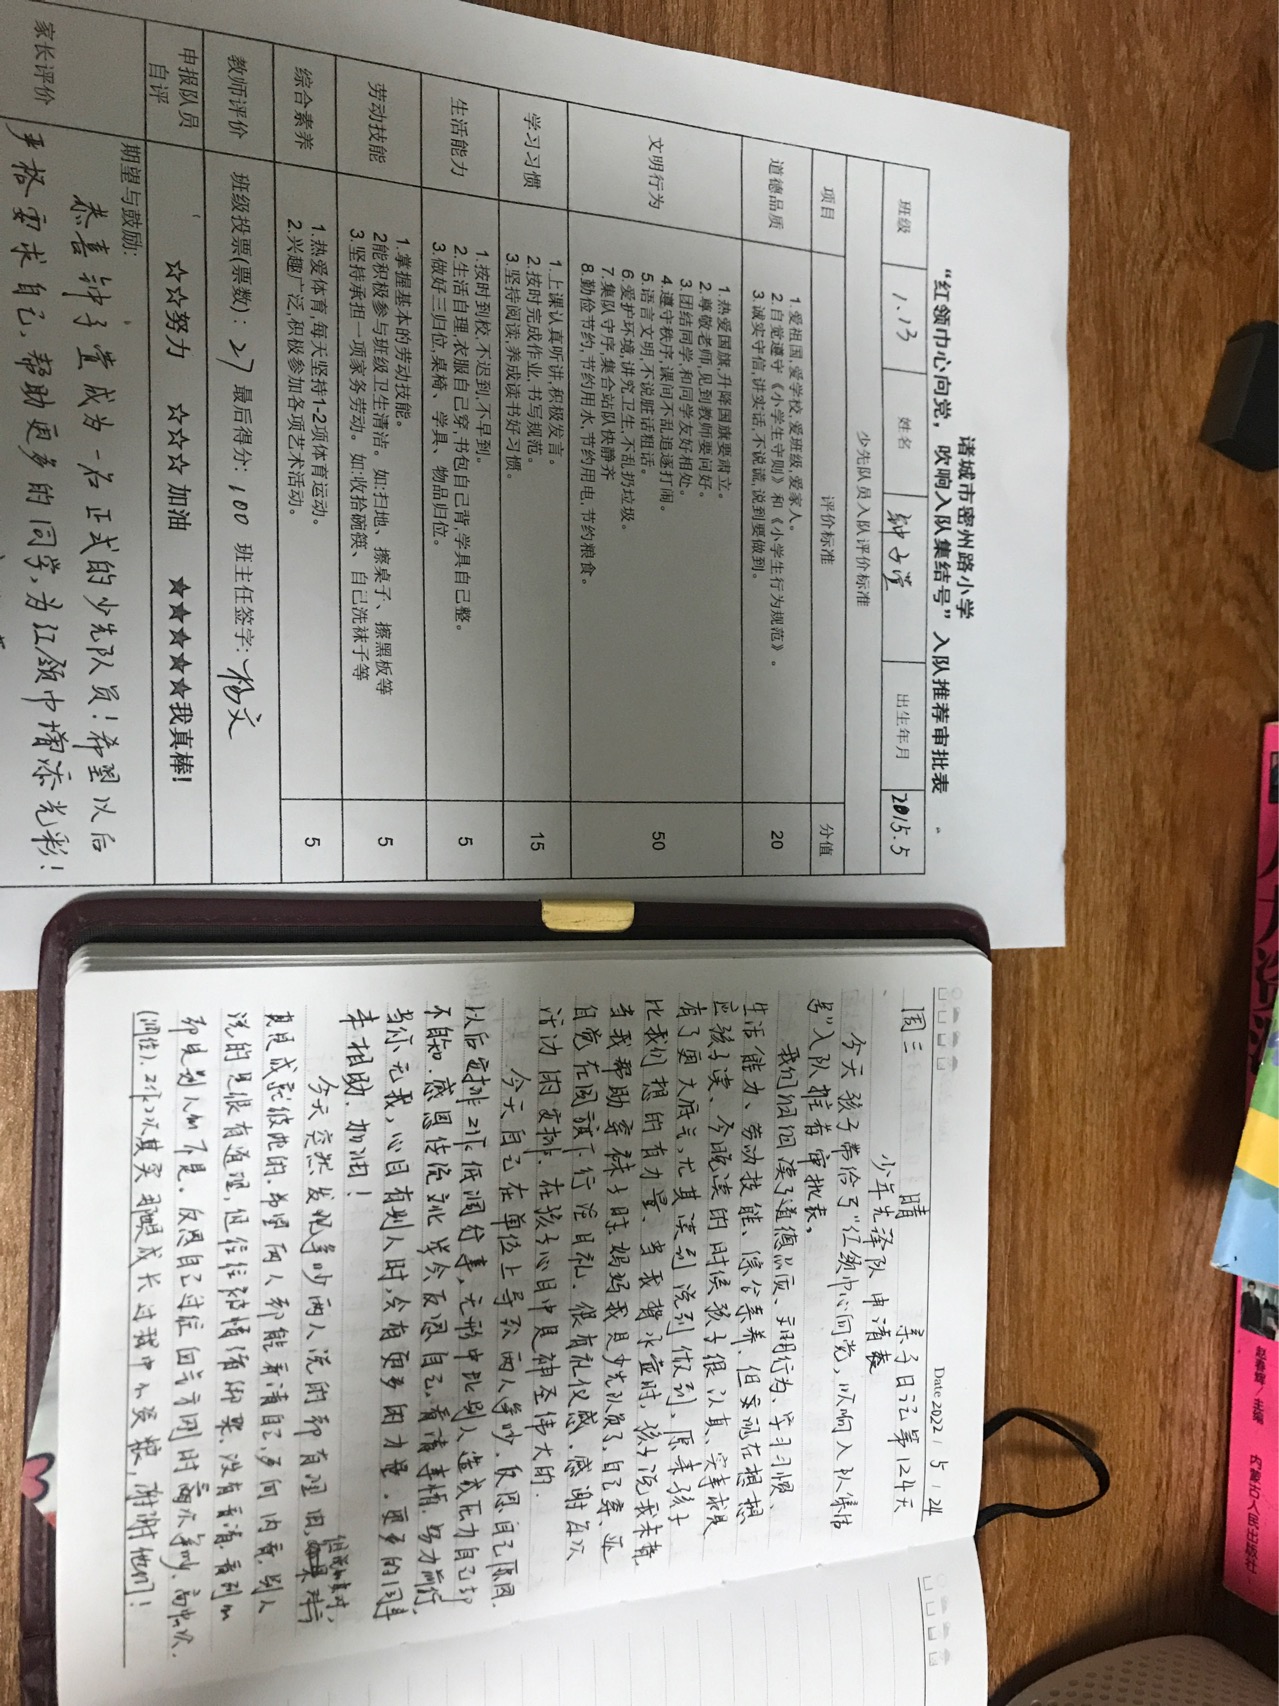 诸城市密州路小学
“红领巾心向党，吹响入队集结号”入队推荐审批表
班级 1.13 姓名 钟子萱 出生年月 2015.5
少先队员入队评价标准
项目 评价标准 分值
道德品质 20
1.爱祖国,爱学校,爱班级,爱家人。
2.自觉遵守《小学生守则》和《小学生行为规范》。
3.诚实守信,讲实话,不说谎,说到要做到。
文明行为 50
1.热爱国旗,升降国旗要肃立。
2.尊敬老师,见到教师要问好。
3.团结同学,和同学友好相处。
4.遵守秩序,课间不乱追逐打闹。
5.语言文明,不说脏话粗话。
6.爱护环境,讲究卫生,不乱扔垃圾。
7.集队守序,集合站队快静齐
8.勤俭节约,节约用水,节约用电,节约粮食。
学习习惯 15
1.上课认真听讲,积极发言。
2.按时完成作业,书写规范。
3.坚持阅读,养成读书好习惯。
生活能力 5
1.按时到校,不迟到,不早到。
2.生活自理,衣服自己穿,书包自己背,学具自己整。
3.做好三归位,桌椅、学具、物品归位。
劳动技能 5
1.掌握基本的劳动技能。
2能积极参与班级卫生清洁。如:扫地、擦桌子、擦黑板等
3.坚持承担一项家务劳动。如:收拾碗筷、自己洗袜子等
综合素养 5
1.热爱体育,每天坚持1-2项体育运动。
2.兴趣广泛,积极参加各项艺术活动。
教师评价 班级投票(票数)：27 最后得分：100 班主任签字：杨文
申报队员自评 ☆☆努力 ☆☆☆加油 ★★★★★我真棒!
家长评价 期望与鼓励:
恭喜钟子萱成为一名正式的少先队员！希望以后
严格要求自己，帮助更多的同学，为红领巾增添光彩！
Date 2022 / 5 / 24
周三 晴 亲子日记第124天
少年先锋队申请表
今天孩子带给了“红领巾心向党，吹响入队集结
号”入队推荐审批表，
我们细细读了道德品质、文明行为、学习习惯、
生活能力、劳动技能、综合素养，但实现在想想
应孩子读、今晚读的时候孩子很认真、完事就是
有了更大底气，尤其读到说到做到，原来孩子
比我们想的有力量，当我背水壶时，孩子说我来背
当我帮助穿袜子时妈妈我是少先队员了，自己穿、还
自觉在国旗下行注目礼，很有礼仪感，感谢每次
活动用安排，在孩子心目中是神圣伟大的.
今天自己在单位上导致两人争吵，反思自己原因，
以后安排工作低调行事，无形中比别人造成压力自己却
不能知，感恩传统文化学会反思自己，看清事情，努力前行，
当你无我，心目有别人时，会有更多的力量，更多的同事
来相助，加油！
今天突然发现争吵两人说的都有理由，
真是成就彼此的，希望两人都能看清自己，多向内看，别人
说的是很有道理，但往往被情绪绑架，没有看清，看到的
却是别人的不是，反思自己过往
其实都是成长过程中小资粮，谢谢他们！